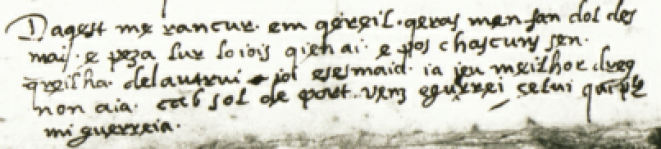 Daqest me rancur. em qereil. qeras men fan dol des
mai. e peza lur lo iois qien ai. e pos chascuns sen.
qreilha. delautrui ioi esesmaia. ia ieu meilhor dreg
non aia. cab sol de port. venz eguerrei. celui qai
mi guerreia.